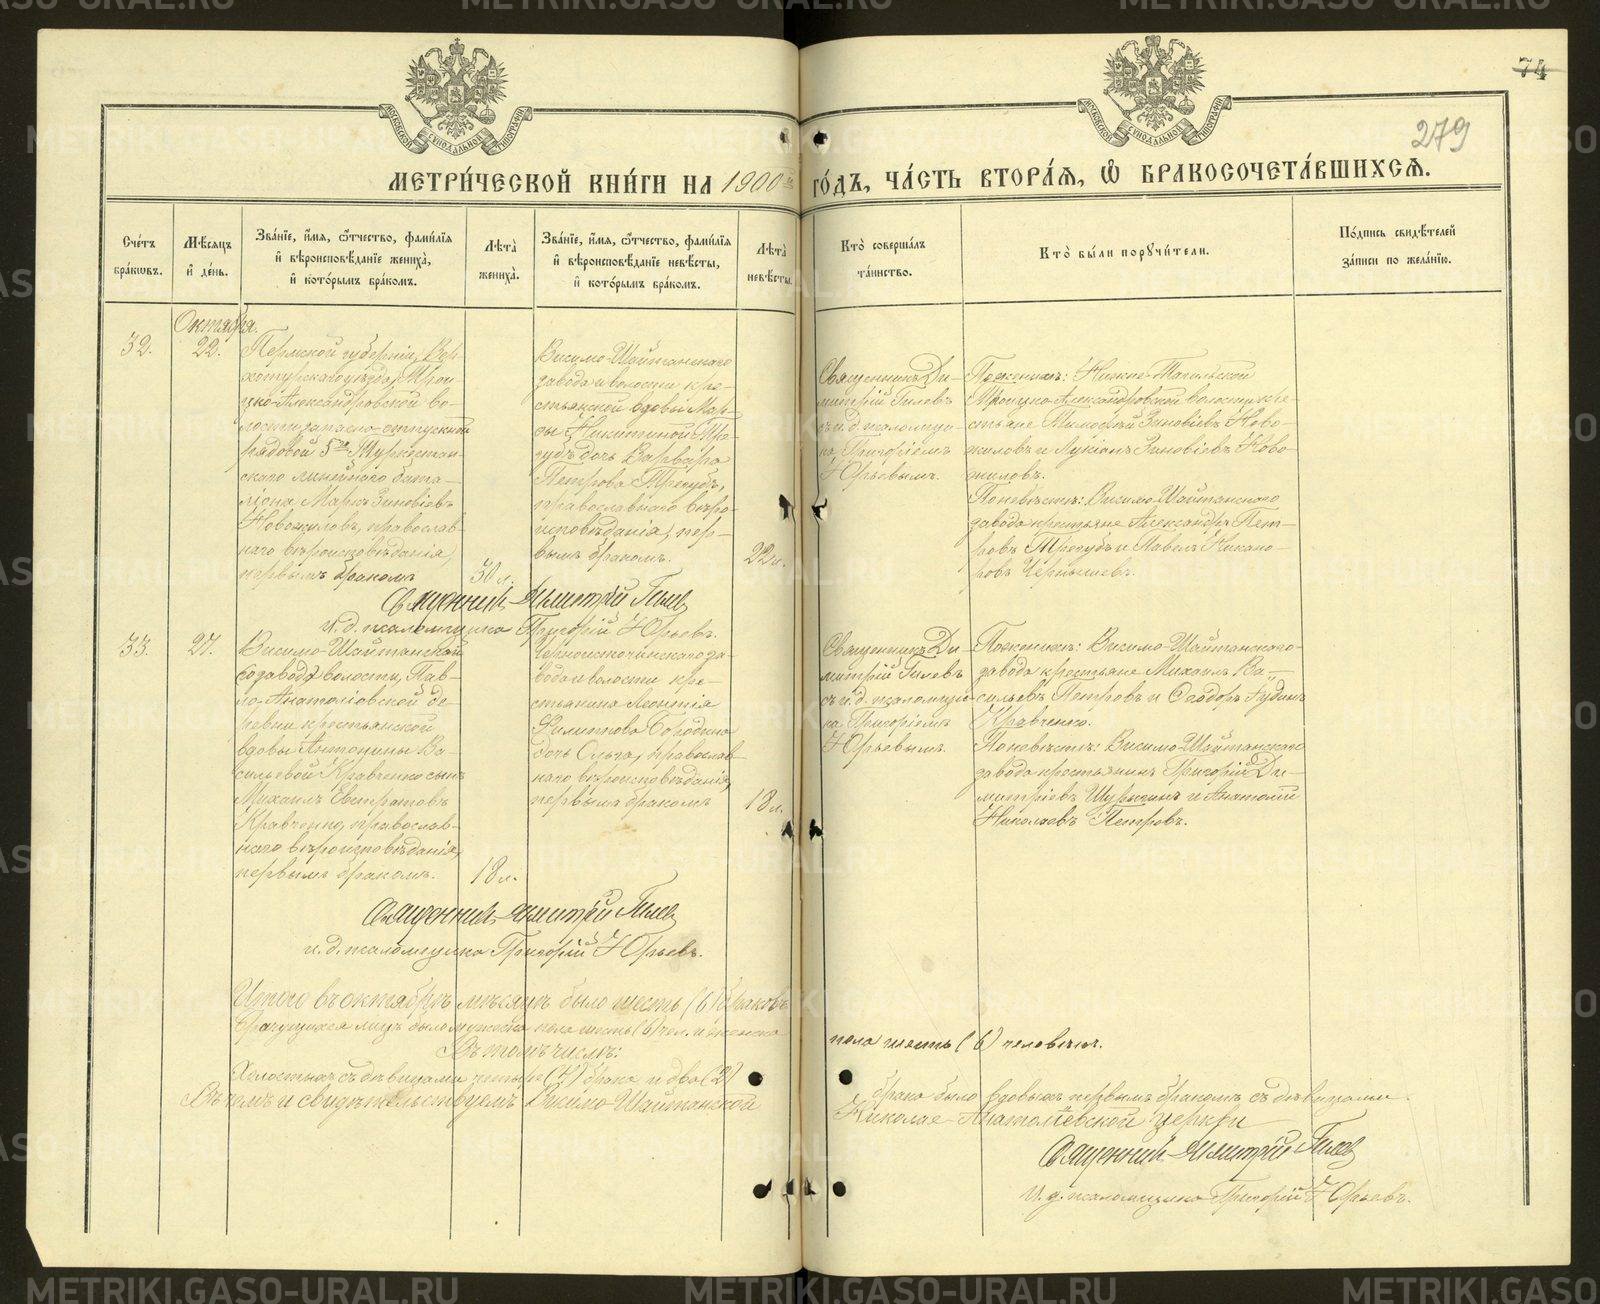 74
279
МОСКОВСКОЙ СѴНОДАЛЬНОЙ ТИПОГРАФІИ
МОСКОВСКОЙ СѴНОДАЛЬНОЙ ТИПОГРАФІИ
МЕТРИ́ЧЕСКОЙ КНИ́ГИ НА 1900 й ГО́ДЪ, ЧА́СТЬ ВТОРА́Я, Ѽ БРАКОСОЧЕТА́ВШИХСЯ.
Сче́тъ бра́ковъ.
Мѣ́сяцъ и де́нь.
Зва́нїе, и́мя, ѻ́тчество, фами́лїя и вѣроисповѣ́данїе жениха̀, и кото́рымъ бра́комъ.
Лѣ́та жениха̀.
Зва́нїе, и́мя, ѻ́тчество, фами́лїя и вѣроисповѣ́данїе невѣ́сты, и кото́рымъ бра́комъ.
Лѣ́та невѣ́сты.
Кто̀ соверша́лъ та́инство.
Кто̀ бы́ли порꙋчи́тели.
По́дпись свидѣ́телей за́писи по жела́нїю.
Октября.
32.
22.
Пермской губерніи, Вер-
хотурскаго уѣзда, Трои-
цко-Александровской во-
лости запасно-отпускной
рядовой 5го Туркестан-
скаго линейнаго бата-
ліона Маркъ Зиновіевъ
Новожиловъ, православ-
наго вѣроисповѣданія,
первымъ бракомъ
30 л.
Висимо-Шайтанскаго
завода и волости кре-
стьянской вдовы Мар-
фы Никитиной Тре-
губъ дочь Варвара
Петрова Трегубъ,
православнаго вѣро-
исповѣданія, пер-
вымъ бракомъ.
22 л.
Священникъ Ди-
митрій Гилевъ
съ и. д. псаломщи-
ка Григоріемъ
Юрьевымъ.
По женихѣ: Нижне-Тагильской
Троицко-Александровской волости кре-
стьяне Тимофей Зиновіевъ Ново-
жиловъ и Лукіанъ Зиновіевъ Ново-
жиловъ.
По невѣстѣ: Висимо-Шайтанскаго
завода крестьяне Александръ Пет-
ровъ Трегубъ и Павелъ Никано-
ровъ Чернышевъ.
Священникъ Димитрій Гилевъ
и. д. псаломщика Григорій Юрьевъ.
33.
27.
Висимо-Шайтанской
завода волости, Пав-
ло-Анатоліевской де-
ревни крестьянской
вдовы Антонины Ва-
сильевой Кравченко сынъ
Михаилъ Евстратовъ
Кравченко, православ-
наго вѣроисповѣданія,
первымъ бракомъ.
18 л.
Черноисточинскаго за-
вода и волости кре-
стьянина Леонтія
Филиппова Бородина
дочь Ольга, православ-
наго вѣроисповѣданія,
первымъ бракомъ
18 л.
Священникъ Ди-
митрій Гилевъ
съ и. д. псаломщи-
ка Григоріемъ
Юрьевымъ.
По женихѣ: Висимо-Шайтанскаго
завода крестьяне Михаилъ Ва-
сильевъ Петровъ и Ѳеодоръ
Кравченко.
По невѣстѣ: Висимо-Шайтанскаго
завода крестьянинъ Григорій Ди-
митріевъ и Анатолій
Николаевъ Петровъ.
Священникъ Димитрій Гилевъ
и. д. псаломщика Григорій Юрьевъ.
Итого въ октябрѣ мѣсяцѣ было шесть (6) браковъ
Брачущихся лицъ было мужеска пола шесть (6) чел. и женска
пола шесть (6) человѣкъ.
Въ томъ числѣ:
Холостыхъ съ дѣвицами четыре (4) брака и два (2)
брака было вдовыхъ первымъ бракомъ съ дѣвицами.
Въ чемъ и свидѣтельствуемъ Висимо-Шайтанской
Николае-Анатоліевской церкви
Священникъ Димитрій Гилевъ
И. д. псаломщика Григорій Юрьевъ.
METRIKI.GASO-URAL.RU